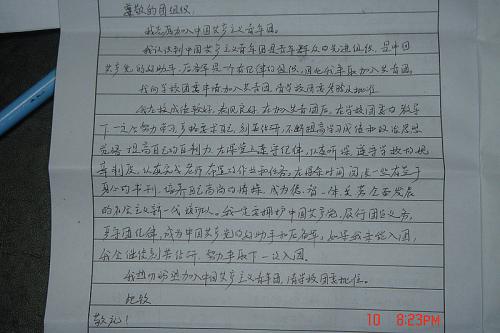 尊敬的团组织:
我志愿加入中国共产主义青年团。
我认识到中国共产主义青年团是青年群众的先进组织,是中国
共产党的好助手,后备军是一个有纪律的组织,因此我争取加入共青团。
我向学校团委申请加入共青团,请学校团委考验及批准
在校成绩较好,表现良好,在加入共青团后,在学校团委的教导
下一定会努力学习,严格要求自己,刻苦钻研,不断提高学习成绩和政治思想
觉悟,提高自己的自制力,在课堂上遵守纪律,认真听课,遵守学校的规
章制度,认真完成老师布置的作业和任务,在课余时间阅读一些有益于
身心的书刊,培养自己高尚的情操,成为德智体美全面发展
的社会主义新一代接班人。我一定要拥护中国共产党,履行团员义务,
严守团化律,成为中国共产党的好助手和后备军,如果我未能入团,
我会继续刻苦钻研,努力争取下一次入团。
我热切盼望加入中国共产主义青年团,请学校团委批准。
此致
敬礼!
10 8:23PM